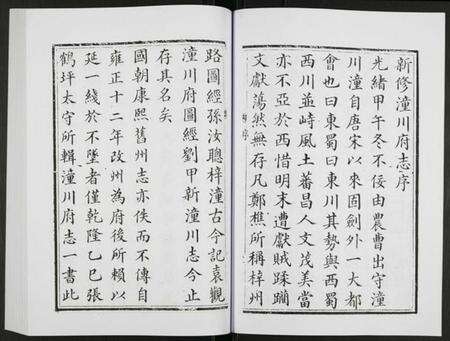 新修潼川府志序
光緒甲午冬不佞由農曹出守潼
川潼自唐宋以來固劍外一大都
會也曰東蜀曰東川其勢與西蜀
西川並峙風土蕃昌人文茂美當
亦不亞於西惜明末遭獻賊蹂躪
文獻蕩然無存凡鄭樵所稱梓州
路圖經孫汝聰梓潼古今記袁觀
潼川府圖經劉甲新潼川志今止
存其名矣
國朝康熙舊州志亦佚而不傳自
雍正十二年改州為府後所賴以
延一綫於不墜者僅乾隆乙巳張
鶴坪太守所輯潼川府志一書此